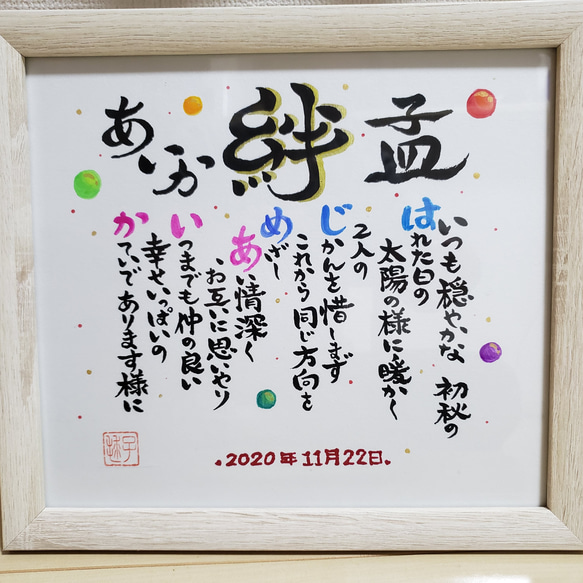 孟
絆
あいか
いつも穏やかな 初秋の
はれた日の
太陽の様に暖かく
2人の
じかんを惜しまず
これから同じ方向を
めざし
あい情深く
お互いに思いやり
いつまでも仲の良い
幸せいっぱいの
かていであります様に
2020年11月22日